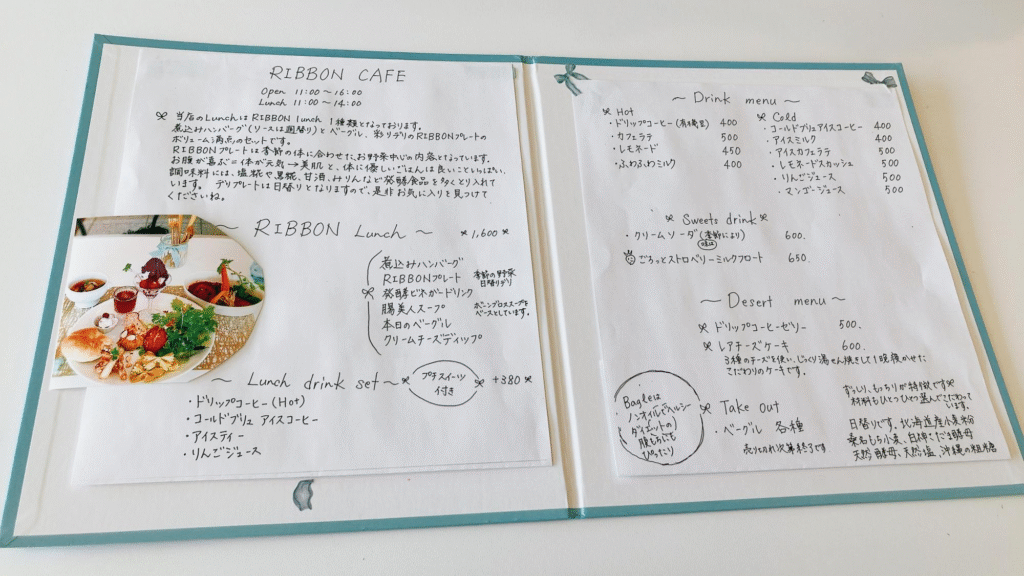 RIBBON CAFE
Open 11:00～16:00
Lunch 11:00～14:00
当店のLunchは RIBBON lunch 1種類となっております。
煮込みハンバーグ(ソースは週替り)と ベーグル、彩りデリのRIBBONプレートの
ボリューム満点のセットです。
RIBBONプレートは季節の体に合わせた、お野菜中心の内容となっています。
お腹が喜ぶ=体が元気→美肌と、体に優しいごはんは良いこといっぱい。
調味料には、塩糀や黒糀、甘酒、みりんなど発酵食品を多くとり入れて
います。 デリプレートは日替りとなりますので、是非お気に入りを見つけて
くださいね。
～ RIBBON Lunch ～ *1,600*
煮込みハンバーグ
RIBBONプレート 季節の野菜
日替りデリ
発酵ビネガードリンク
腸美人スープ ボーンブロススープを
ベースとしています。
本日のベーグル
クリームチーズディップ
～ Lunch drink set～ プチスイーツ
付き +380
・ドリップコーヒー(Hot)
・コールドブリュ アイスコーヒー
・アイスティー
・りんごジュース
～ Drink menu ～
Hot
・ドリップコーヒー(有機豆) 400
・カフェラテ 500
・レモネード 450
・ふわふわミルク 400
Cold
・コールドブリュアイスコーヒー 400
・アイスミルク 400
・アイスカフェラテ 500
・レモネードスカッシュ 500
・りんごジュース 500
・マンゴージュース 500
Sweets drink
・クリームソーダ(季節により) 600.
ごろっとストロベリーミルクフロート 650.
～ Desert menu ～
ドリップコーヒーゼリー 500.
レアチーズケーキ 600.
3種のチーズを使い、じっくり湯せん焼きして1晩寝かせた
こだわりのケーキです。
Bagleは
ノンオイルでヘルシー
ダイエットの
腹もちにも
ぴったり
Take out
・ベーグル 各種
売りきれ次第終了です
ずっしり、もっちりが特徴です
材料もひとつひとつ選んでこだわって
います。
日替りです。北海道産小麦粉
桑名もち小麦、白神こだま酵母
天然酵母、天然塩、沖縄の粗糖